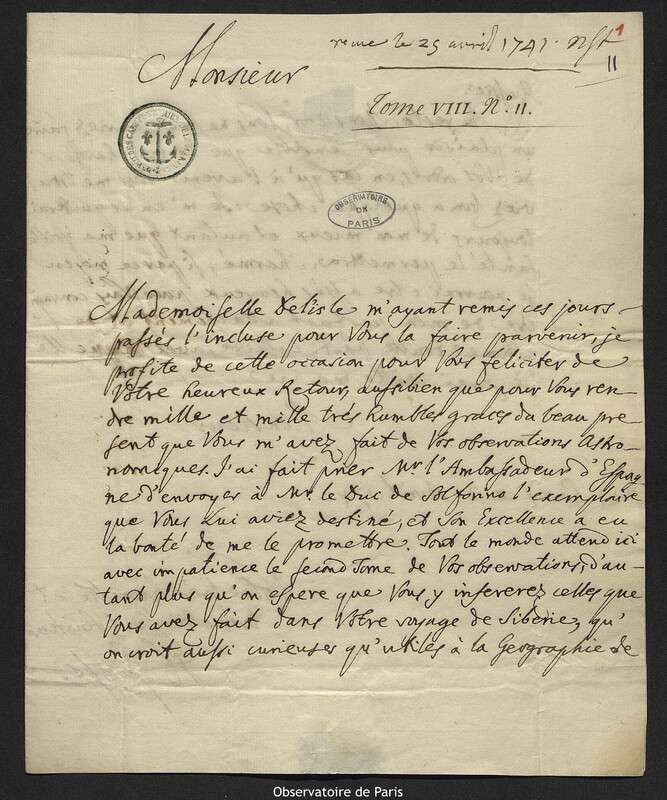 reçue le 25 avril 1741. nSt
1
11
Monsieur
Tome VIII. N.° 11.
OBSERVATOIRE
DE
PARIS
Mademoiselle Delisle m'ayant remis ces jours
passés l'incluse pour Vous la faire parvenir, je
profite de cette occasion pour Vous feliciter de
Vôtre heureux Retour, aussibien que pour Vous ren-
dre mille et mille très humbles graces du beau pre
sent que Vous m'avez fait de Vos observations Astro-
nomiques. J'ai fait prier Mr. l'Ambassadeur d'Espag
ne d'envoyer à Mr. le Duc de Solferino l'exemplaire
que Vous lui aviez destiné, et Son Excellence a eu
la bonté de me le promettre. Tout le monde attend ici
avec impatience le second Tome de Vos observations, d'au-
tant plus qu'on espere que Vous y insererez celles que
Vous avez fait dans Vôtre voyage de Siberie, qu'
on croit aussi curieuses qu'utiles à la Geographie de
Observatoire de Paris